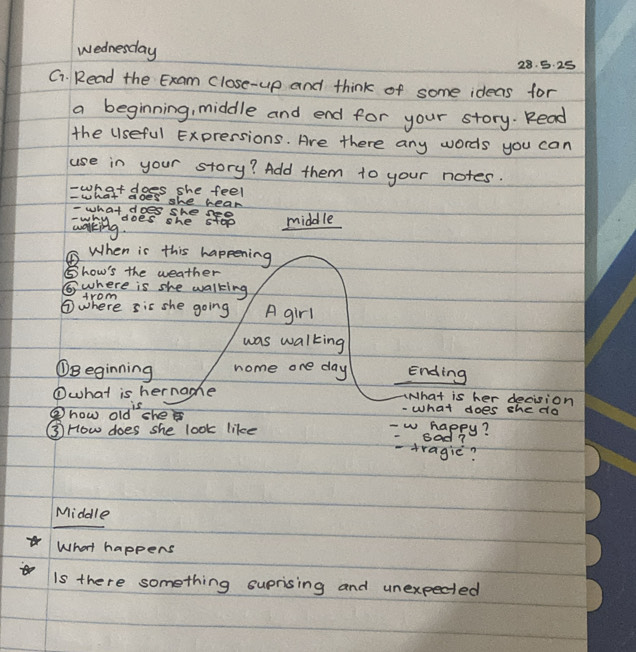 Wednesday
28.5.25
G. Read the Exam close-up and think of some ideas for
a beginning, middle and end for your story. Read
the Useful Expressions. Are there any words you can
use in your story? Add them to your notes.
- what does she feel
- what does she hear
- what does she see
- why does she stop
walking.
middle
④ When is this happening
⑤ how's the weather
⑥ where is she walking
from
⑦ where is she going
A girl
was walking
home one day
① Beginning
① what is her name
② how old is she
③ How does she look like
Ending
- What is her decision
- what does she do
- happy?
- sad?
- tragic?
Middle
☆ What happens
☆ Is there something suprising and unexpected